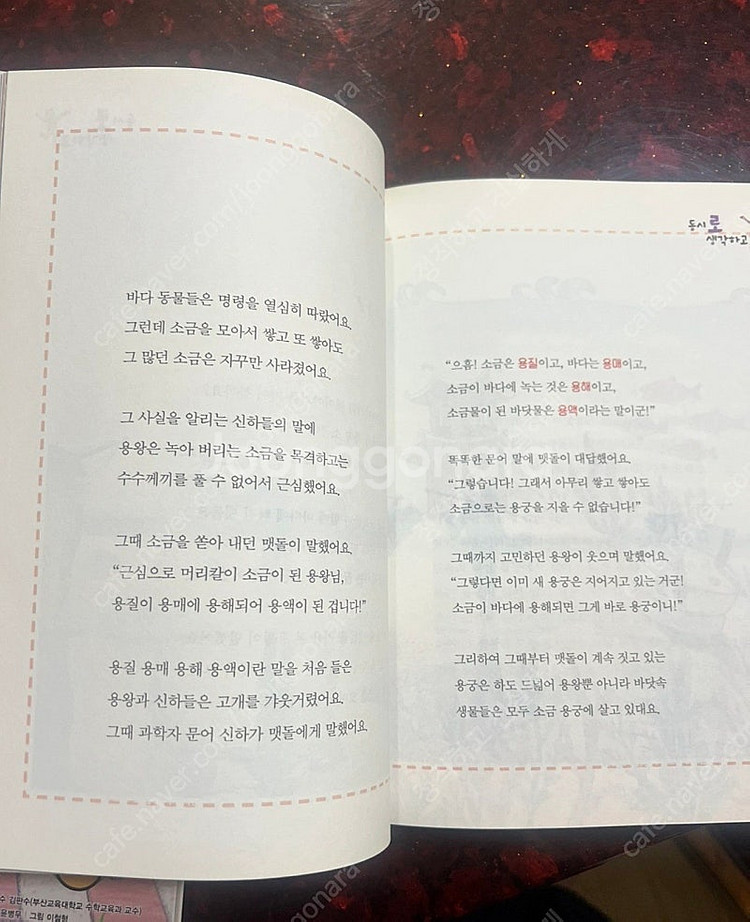 바다 동물들은 명령을 열심히 따랐어요.
그런데 소금을 모아서 쌓고 또 쌓아도
그 많던 소금은 자꾸만 사라졌어요.
그 사실을 알리는 신하들의 말에
용왕은 녹아 버리는 소금을 목격하고는
수수께끼를 풀 수 없어서 근심했어요.
그때 소금을 쏟아 내던 맷돌이 말했어요.
“근심으로 머리칼이 소금이 된 용왕님,
용질이 용매에 용해되어 용액이 된 겁니다!”
용질 용매 용해 용액이란 말을 처음 들은
용왕과 신하들은 고개를 갸웃거렸어요.
그때 과학자 문어 신하가 맷돌에게 말했어요.
동시로
생각하고
“으흠! 소금은 용질이고, 바다는 용매이고,
소금이 바다에 녹는 것은 용해이고,
소금물이 된 바닷물은 용액이라는 말이군!”
똑똑한 문어 말에 맷돌이 대답했어요.
“그렇습니다! 그래서 아무리 쌓고 쌓아도
소금으로는 용궁을 지을 수 없습니다!”
그때까지 고민하던 용왕이 웃으며 말했어요.
“그렇다면 이미 새 용궁은 지어지고 있는 거군!
소금이 바다에 용해되면 그게 바로 용궁이니!”
그리하여 그때부터 맷돌이 계속 짓고 있는
용궁은 하도 드넓어 용왕뿐 아니라 바닷속
생물들은 모두 소금 용궁에 살고 있대요.
수 김판수(부산교육대학교 수학교육과 교수)
윤병무 | 그림 이철형
joonggonara
cafe.naver.com/joonggonara